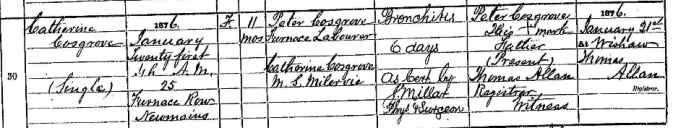 30
Catherine
Cosgrove
(Single)
1876.
January
Twenty first
4h. A.M.
25
Furnace Row
Newmains
F
11
mos
Peter Cosgrove
Furnace Labourer
Catherine Cosgrove
M. S.
Bronchitis
6 days
As Cert by
J Millar
Phys & Surgeon
Peter Cosgrove
His x mark
Father
(Present)
Thomas Allan
Registrar,
Witness
1876.
January 21st
At Wishaw
Thomas
Allan
Registrar.